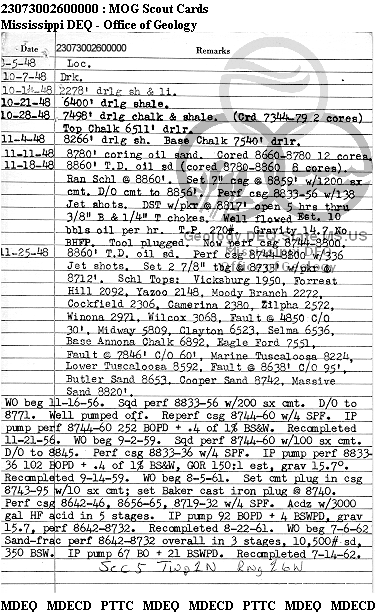 23073002600000 : MOG Scout Cards
Mississippi DEQ - Office of Geology
Date 23073002600000 Remarks
-5-48 Loc.
0-7-48 Drk.
10-14-48 2278' drlg sh & li.
10-21-48 6400' drlg shale.
10-28-48 7498' drlg chalk & shale. (Crd 7344-79 2 cores)
Top Chalk 6511' drlr.
11-4-48 8266' drlg sh. Base Chalk 7540' drlr.
11-11-48 8780' coring oil sand. Cored 8660-8780 12 cores.
11-18-48 8860' T.D. oil sd (cored 8780-8860 8 cores).
Ran Schl @ 8860'. Set 7" csg @ 8859' w/1200 sx
cmt. D/O cmt to 8856'. Perf csg 8833-56 w/138
Jet shots. DST w/pkr @ 8317' open 5 hrs thru
3/8" B & 1/4" T chokes. Well flowed Est. 10
bbls oil per hr. T.P. 270#. Gravity 14.7. No
BHFP. Tool plugged. Now perf csg 8744-8800.
11-25-48 8860' T.D. oil sd. Perf csg 8744-8800 w/336
Jet shots. Set 2 7/8" tbg @ 8733' w/pkr @
8712'. Schl Tops: Vicksburg 1950, Forrest
Hill 2092, Yazoo 2148, Moody Branch 2272,
Cockfield 2306, Camerina 2380, Zilpha 2572,
Winona 2971, Wilcox 3068, Fault @ 4850 C/O
30', Midway 5809, Clayton 6523, Selma 6536,
Base Annona Chalk 6892, Eagle Ford 7551,
Fault @ 7846' C/O 60', Marine Tuscaloosa 8224,
Lower Tuscaloosa 8592, Fault @ 8638' C/O 95',
Butler Sand 8653, Cooper Sand 8742, Massive
Sand 8820'.
WO beg 11-16-56. Sqd perf 8833-56 w/200 sx cmt. D/O to
8771. Well pumped off. Reperf csg 8744-60 w/4 SPF. IP
pump perf 8744-60 252 BOPD + .4 of 1% BS&W. Recompleted
11-21-56. WO beg 9-2-59. Sqd perf 8744-60 w/100 sx cmt.
D/O to 8845. Perf csg 8833-36 w/4 SPF. IP pump perf 8833-
36 102 BOPD + .4 of 1% BS&W, GOR 150:1 est, grav 15.7°.
Recompleted 9-14-59. WO beg 8-5-61. Set cmt plug in csg
8743-95 w/10 sx cmt; set Baker cast iron plug @ 8740.
Perf csg 8642-46, 8656-65, 8719-32 w/4 SPF. Acdz w/3000
gal HF acid in 5 stages. IP pump 92 BOPD + 4 BSWPD, grav
15.7, perf 8642-8732. Recompleted 8-22-61. WO beg 7-6-62
Sand-frac perf 8642-8732 overall in 3 stages, 10,500# sd,
350 BSW. IP pump 67 BO + 21 BSWPD. Recompleted 7-14-62.
Sec 5 Twp 2N Rng 26W
MDEQ MDECD PTTC MDEQ MDECD PTTC MDEQ MDECD